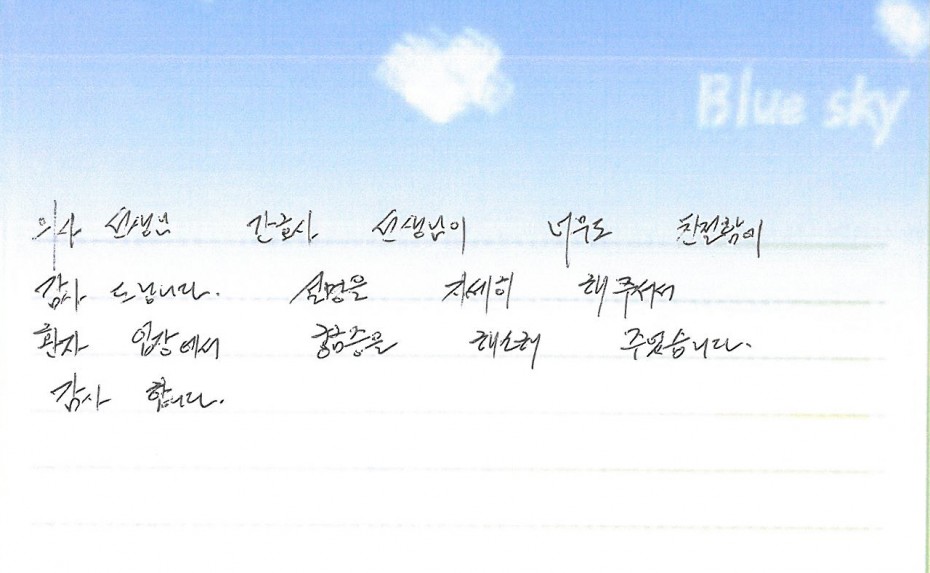 Blue sky
의사 선생님 간호사 선생님이 너무도 친절함에
감사 드닙니다. 설명을 자세히 해 주셔서
환자 입장에서 궁금증을 해소해 주었습니다.
감사 합니다.